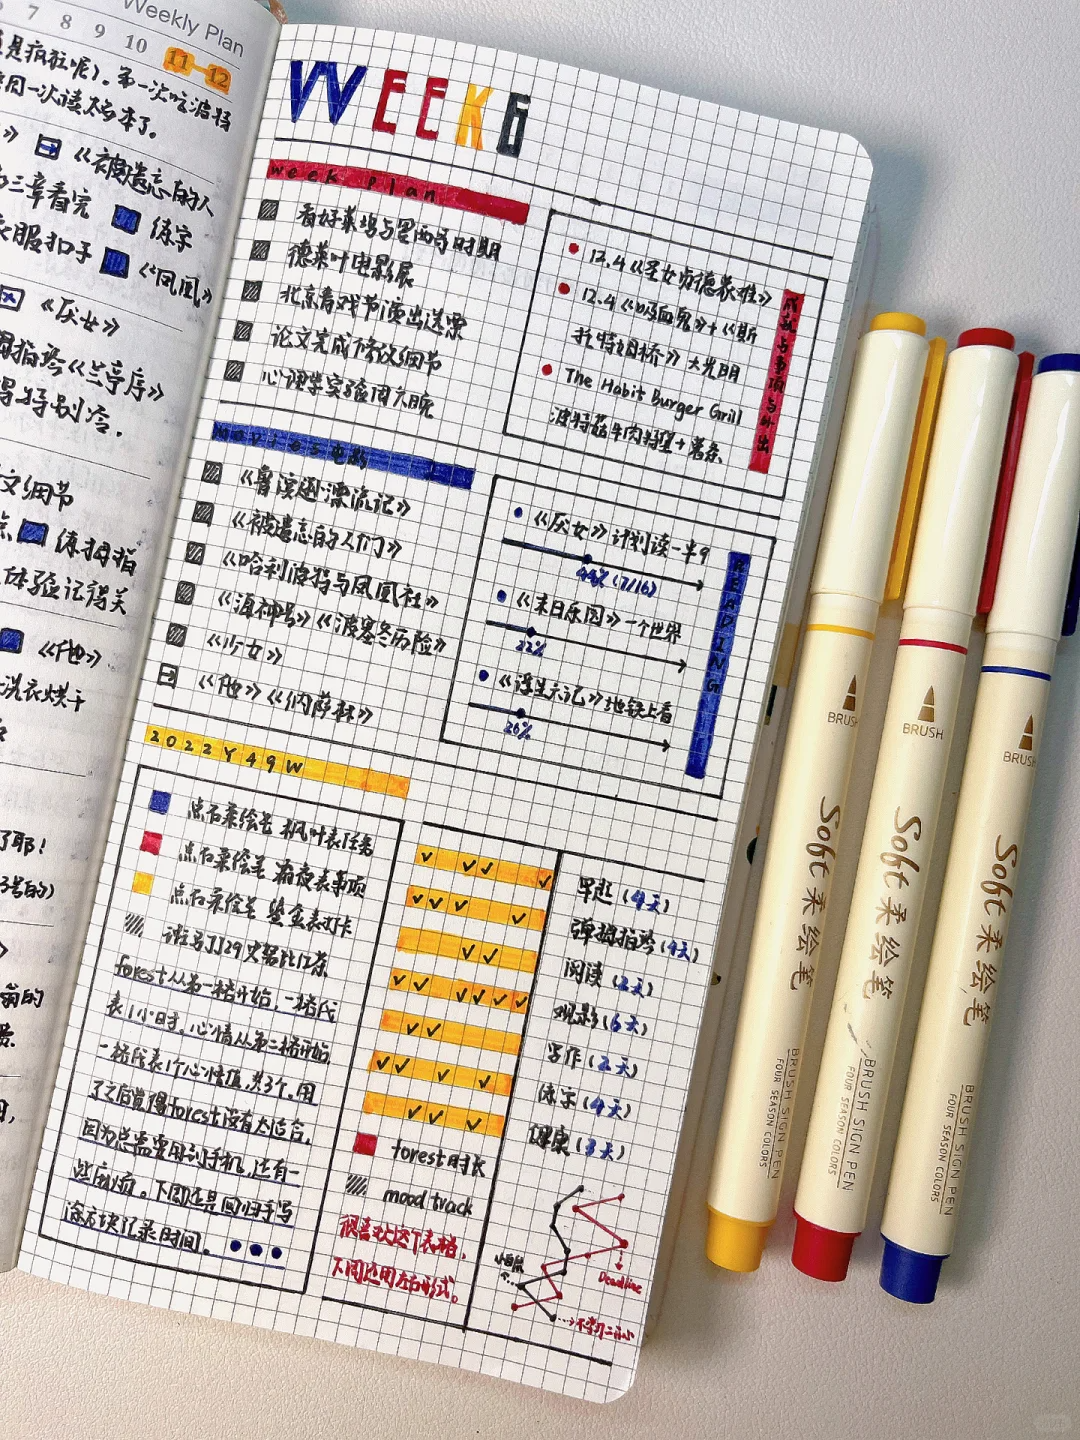 Weekly Plan
7 8 9 10 11-12
是疯狂呢)。第一次吃波特
一次读太多本了。
》 《被遗忘的人
三章看完 练字
衣服扣子 《凤凰》
《厌女》
拇指琴《兰亭序》
得特别冷.
文细节
练拇指
体验记得关
《他》
洗衣烘干
了耶!
WEEK6
week plan
看好莱坞与墨西哥时期
德莱叶电影展
北京青戏节演出送票
论文完成修改细节
心理学实验周六晚
12.4《圣女贞德蒙难》
12.4《吸血鬼》+《斯
托特姆桥》大光明
The Habit Burger Grill
波特菇牛肉特堡+薯条
成就与事项与外出
Movies电影
《鲁滨逊漂流记》
《被遗忘的人们》
《哈利波特与凤凰社》
《海神号》《波塞冬历险》
《少女》
《他》
《厌女》计划读一半9
44% (7/16)
《末日乐园》一个世界
22%
《浮生六记》地铁上看
26%
READING
2022Y49W
点石柔绘笔 枫叶表任务
点石柔绘笔 表事项
点石柔绘笔 鎏金表打卡
JJ29
forest从第一格开始,一格代
表1小时,心情从第二格开始
一格代表1个心情值,共3个,用
了之后觉得forest没有太适合,
因为总需要用到手机,还有一
些麻烦。下周还是回归手写
涂方块记录时间。
早起(4天)
弹拇指琴(4天)
阅读(2天)
观影(6天)
写作(2天)
练字(4天)
健康(3天)
forest时长
mood track
很喜欢这个表格,
下周还用左右形式。
Deadline
BRUSH
Soft 柔绘笔
BRUSH SIGN PEN
FOUR SEASON COLORS
BRUSH
Soft 柔绘笔
BRUSH SIGN PEN
FOUR SEASON COLORS
BRUSH
Soft 柔绘笔
BRUSH SIGN PEN
FOUR SEASON COLORS